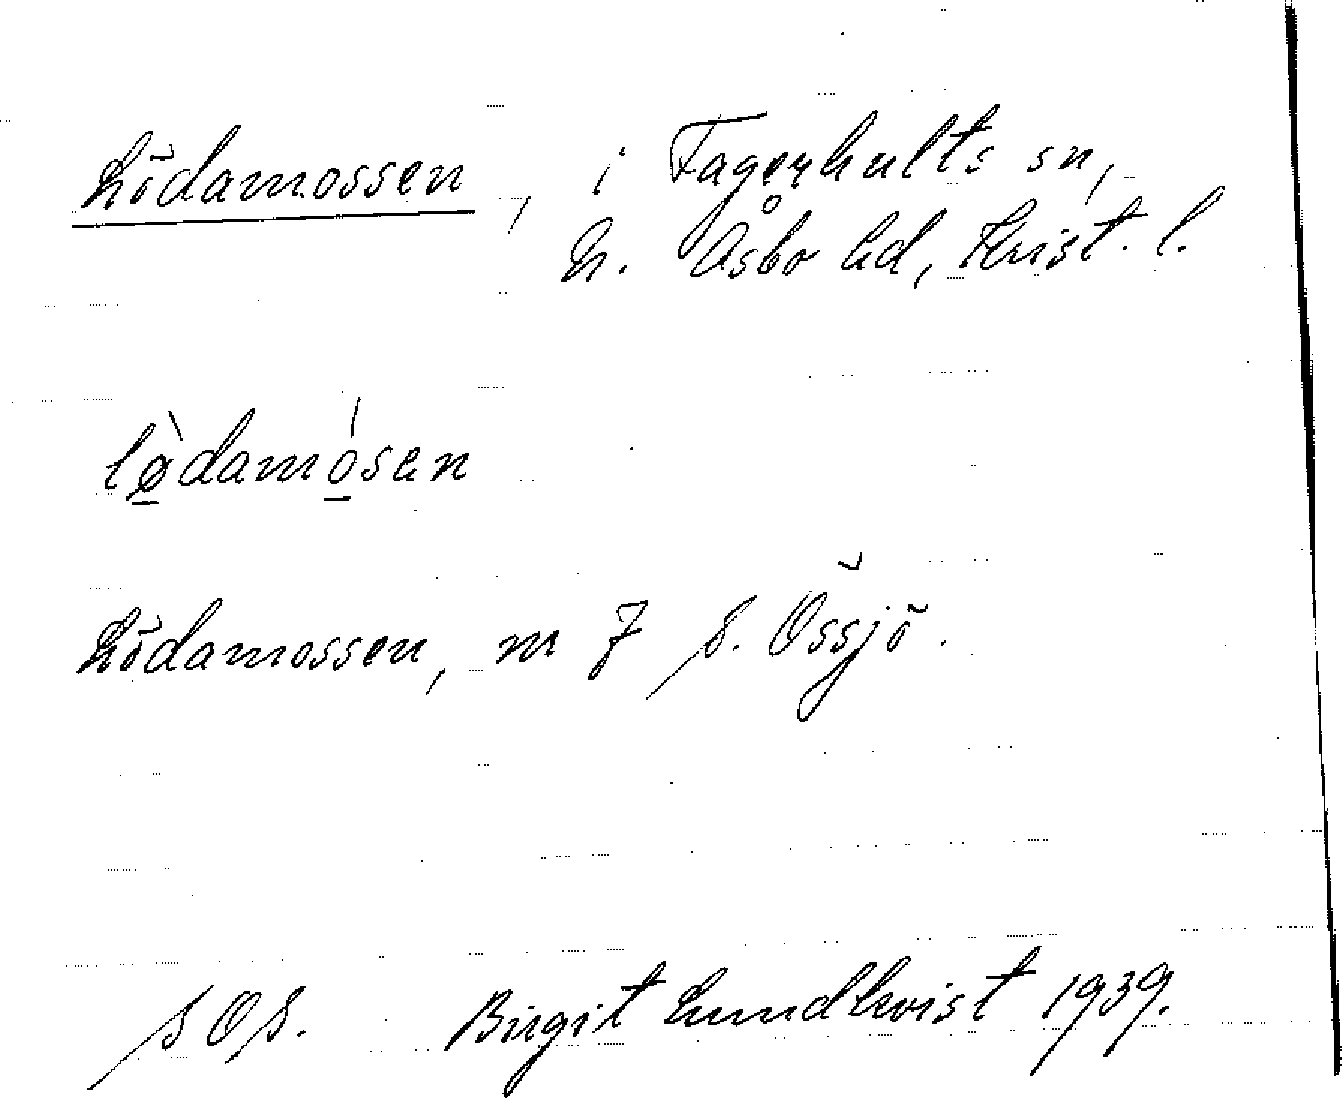 Lödamossen, i Fagerhults sn,
N. Åsbo hd, Krist. l.
lø̠̀damó̠sen
Lödamossen, m 7 S. Össjö.
S Ö S. Birgit Lundkvist 1939.